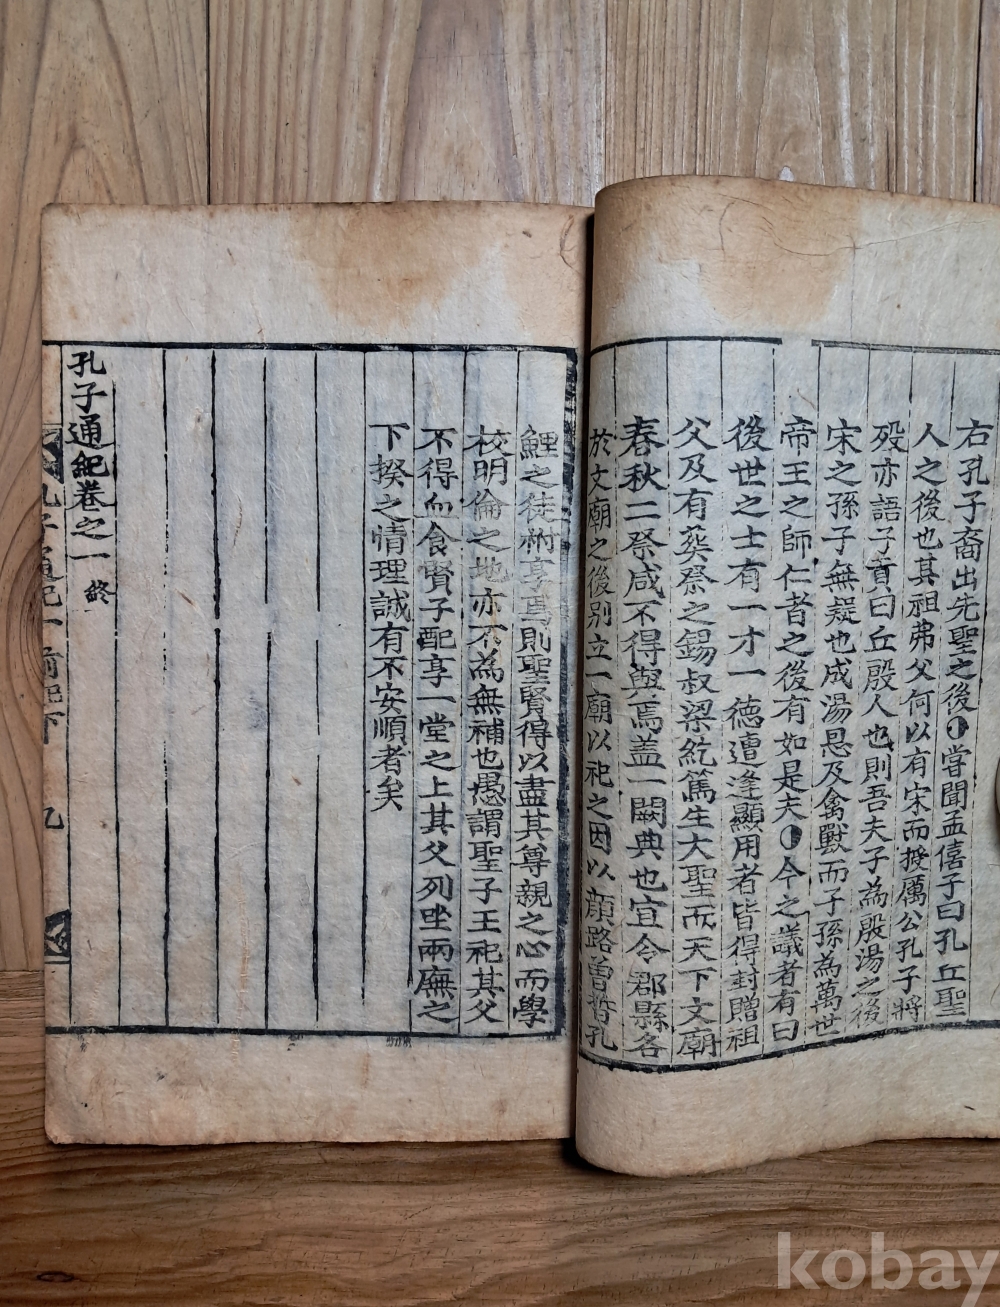 右孔子裔出先聖之後◐嘗聞孟僖子曰孔丘聖
人之後也其祖弗父何以有宋而授厲公孔子將
歿亦語子貢曰丘殷人也則吾夫子為殷湯之後
宋之孫子無疑也成湯恩及禽獸而子孫為萬世
帝王之師仁者之後有如是夫◐今之議者有曰
後世之士有一才一德遭逢顯用者皆得封贈祖
父及有葬祭之錫叔梁紇篤生大聖而天下文廟
春秋二祭咸不得與焉盖一闕典也宜令郡縣各
於文廟之後別立一廟以祀之因以顔路曾晳孔
鯉之徒祔享焉則聖賢得以盡其尊親之心而學
校明倫之地亦不為無補也愚謂聖子王祀其父
不得血食賢子配享一堂之上其父列坐兩廡之
下揆之情理誠有不安順者矣
孔子通紀卷之一 終
孔子通紀一 前紀下 九
kobay